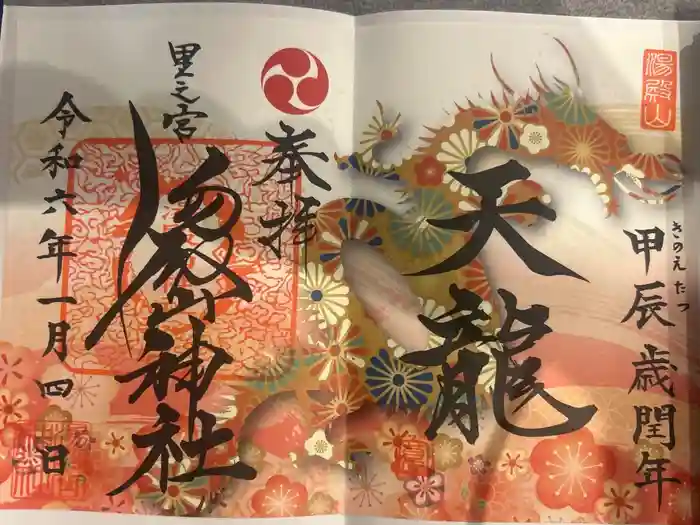 湯殿山
甲辰歳閏年
きのえたつ
天龍
奉拝
里之宮
湯殿山神社
令和六年一月四日